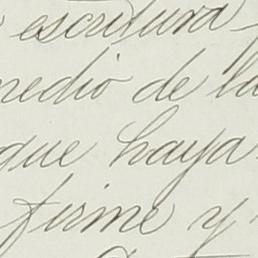 escritura
medio de la
que haya
firme y